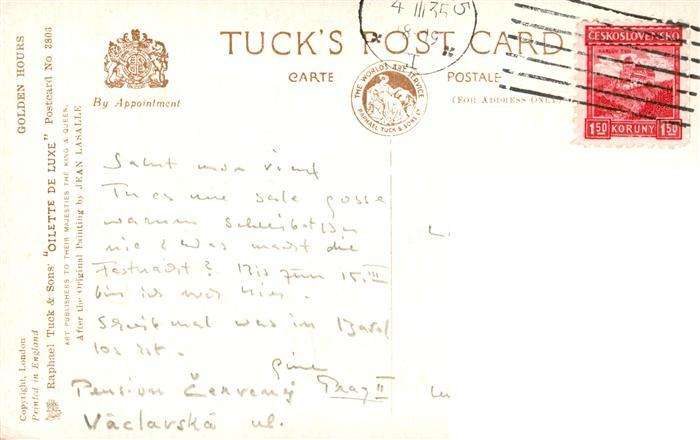 TUCK'S POST CARD
CARTE POSTALE
By Appointment
(FOR ADDRESS ONLY)
THE WORLD'S ART SERVICE
RAPHAEL TUCK & SONS LTD
4 III 35
ČESKOSLOVENSKO
1.50 KORUNY 1.50
GOLDEN HOURS
Raphael Tuck & Sons' "OILETTE DE LUXE" Postcard No 3803
ART PUBLISHERS TO THEIR MAJESTIES THE KING & QUEEN.
After the Original Painting by JEAN LASALLE
Copyright, London
Printed in England
Salut mon
Tu es une sale gosse
warum schreibst Du
nie? Was macht die
Fastnacht? Bis zum 15. III
bin ich noch hier.
Schreib mal was in Basel
los ist.
Pension Červený Prag II
Václavská ul.